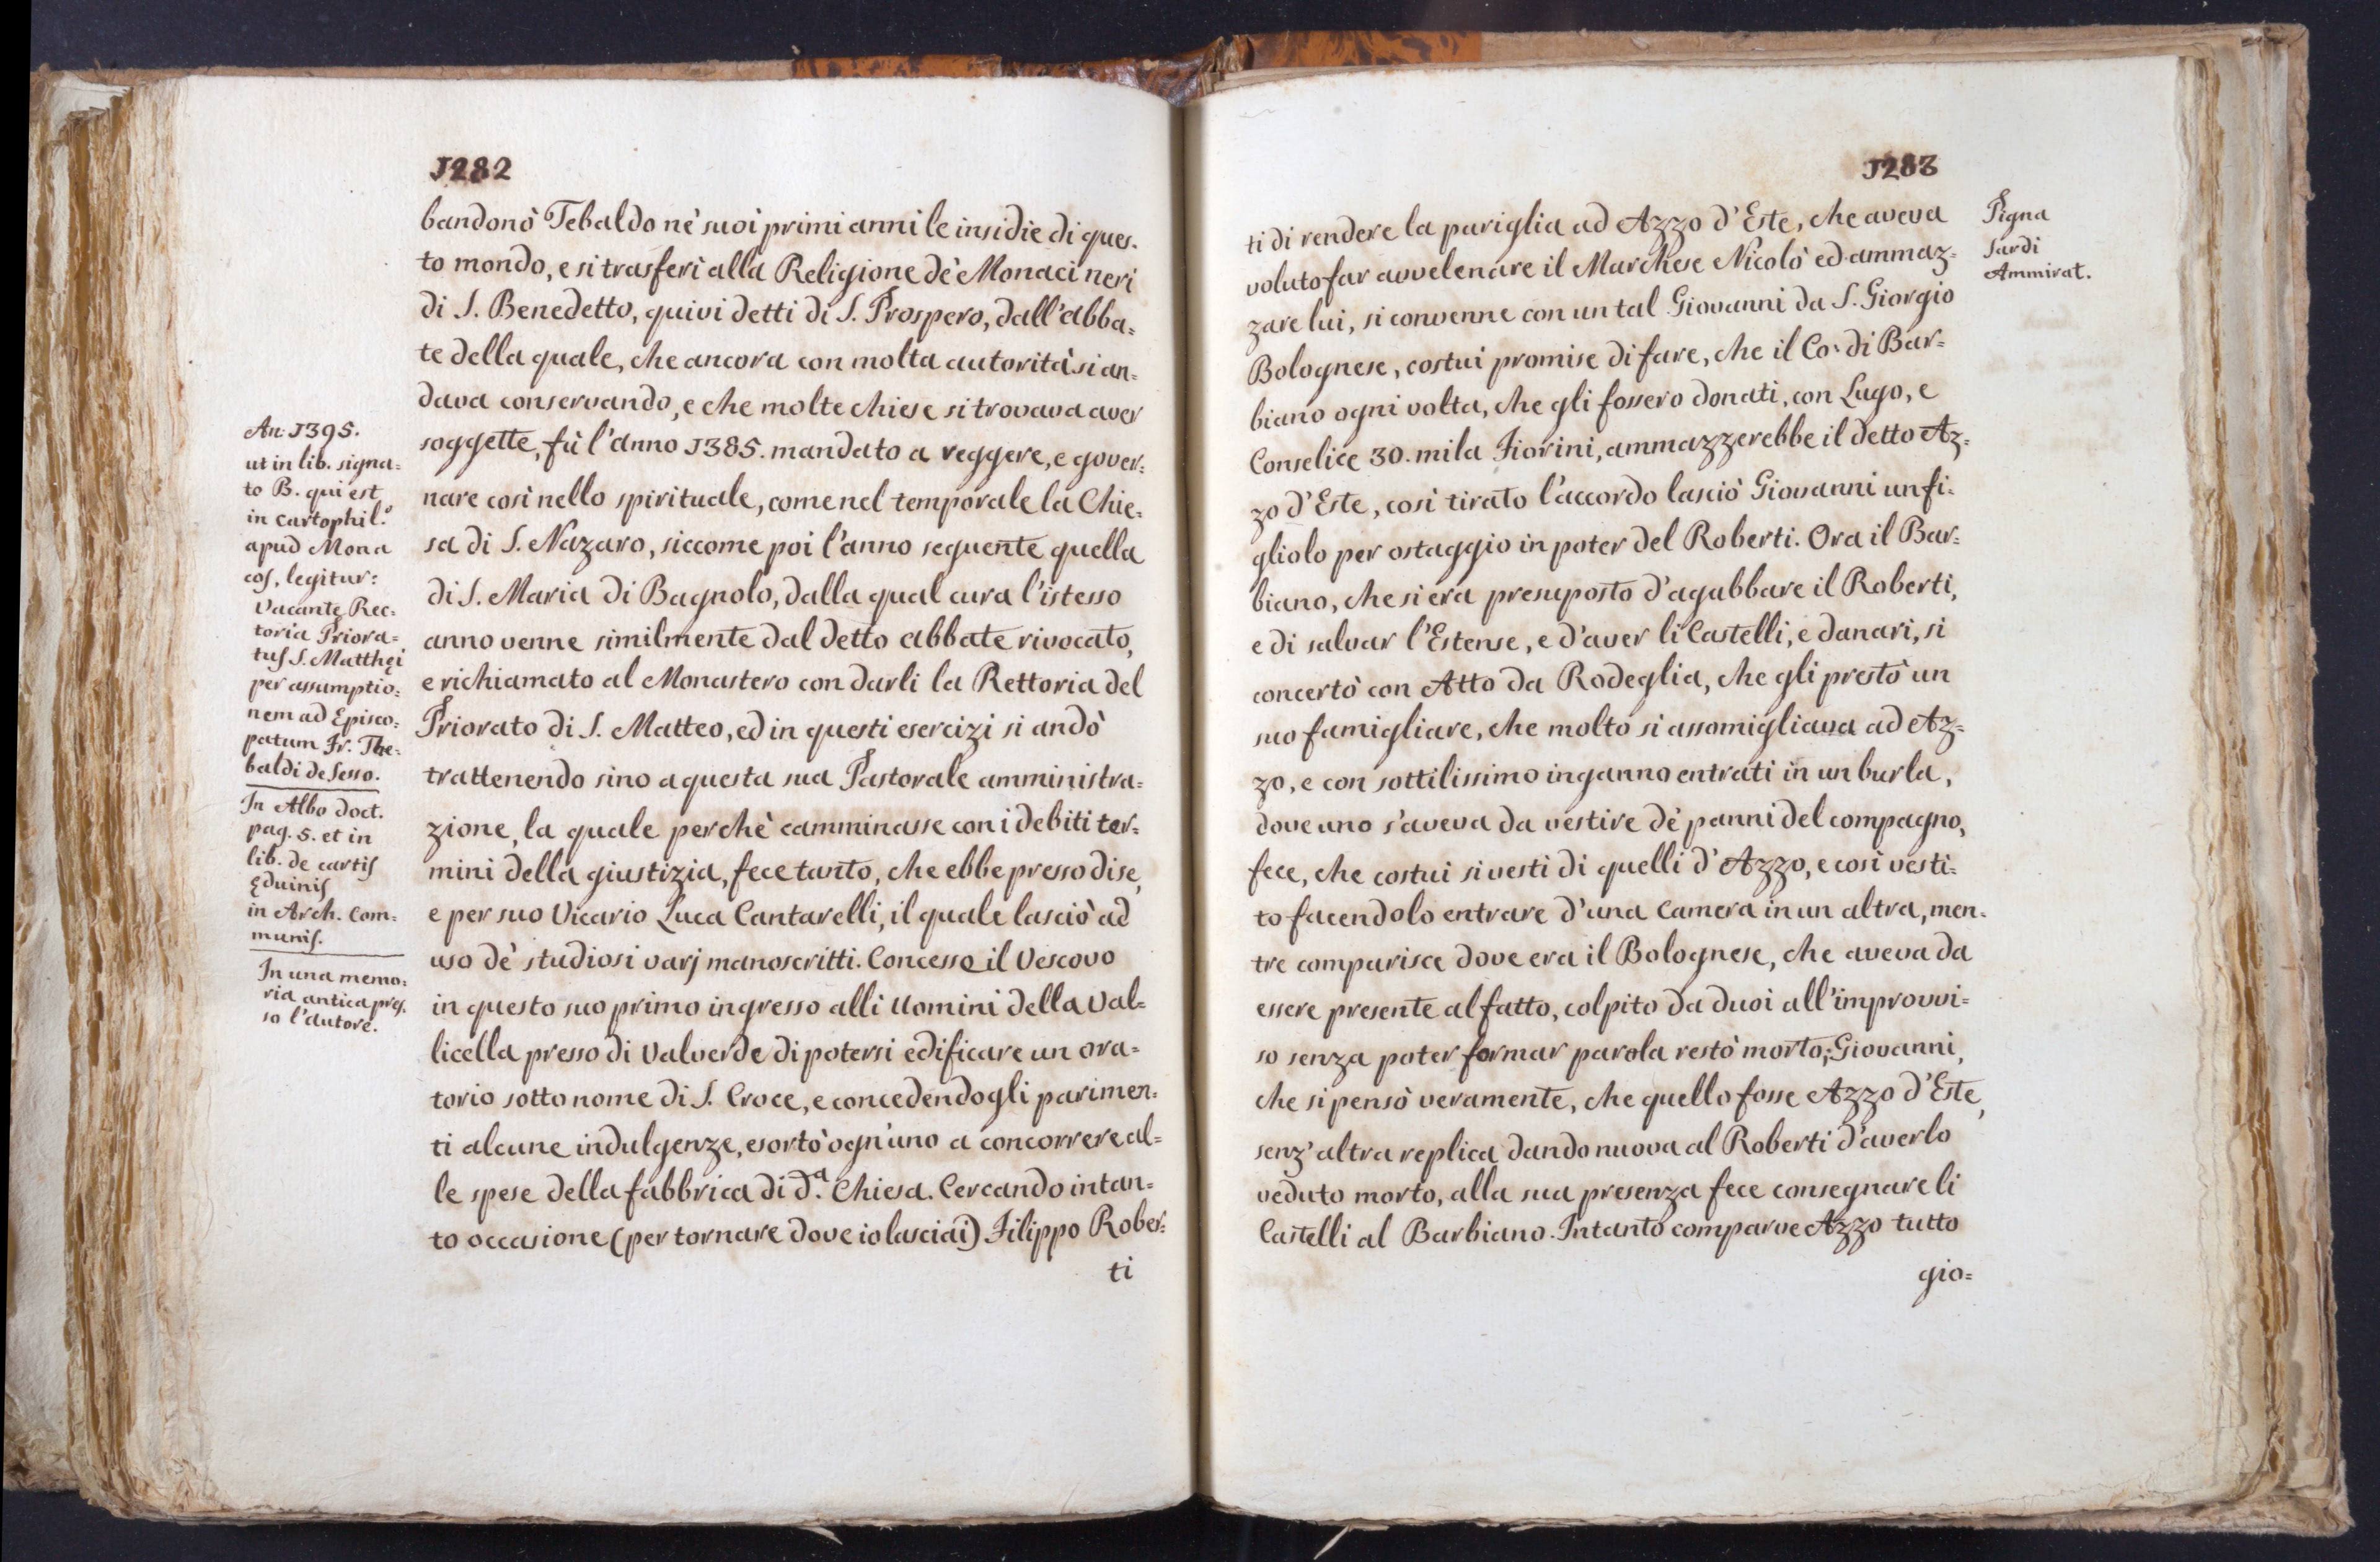 1282
bandonò Tebaldo nè suoi primi anni le insidie di ques-
to mondo, e si trasferì alla Religione dè Monaci neri
di S. Benedetto, quivi detti di S. Prospero, dall'Abba=
te della quale, che ancora con molta autorità si an=
dava conservando, e che molte chiese si trovava aver
soggette, fù l'anno 1385. mandato a reggere, e gover=
nare così nello spirituale, come nel temporale la Chie=
sa di S. Nazaro, siccome poi l'anno seguente quella
di S. Maria di Bagnolo, dalla qual cura l'istesso
anno venne similmente dal detto Abbate rivocato,
e richiamato al Monastero con darli la Rettoria del
Priorato di S. Matteo, ed in questi esercizi si andò
trattenendo sino a questa sua Pastorale amministra=
zione, la quale perchè camminasse con i debiti ter=
mini della giustizia, fece tanto, che ebbe presso di se,
e per suo Vicario Luca Cantarelli, il quale lasciò ad
uso dè studiosi varj manoscritti. Concesse il Vescovo
in questo suo primo ingresso alli Uomini della Val=
licella presso di Valverde di potersi edificare un ora=
torio sotto nome di S. Croce, e concedendogli parimen=
ti alcune indulgenze, esortò ogn'uno a concorrere al=
le spese della fabbrica di d.ª Chiesa. Cercando intan=
to occasione (per tornare dove io lasciai) Filippo Rober=
ti
An: 1395.
ut in lib. signa=
to B. qui est
in cartophil.º
apud Mona
cos, legitur:
Vacante Rec=
toria Priora=
tus S. Matthęi
per assumptio=
nem ad Episco=
patum Fr. The=
baldi de Sesso.
In Albo doct.
pag. 5. et in
lib. de cartis
ęduinis
in Arch. Com=
munis.
In una memo=
ria antica pres.
so l'autore.
1283
ti di rendere la pariglia ad Azzo d'Este, che aveva
voluto far avvelenare il Marchese Nicolò ed ammaz=
zare lui, si convenne con un tal Giovanni da S. Giorgio
Bolognese, costui promise di fare, che il Co: di Bar=
biano ogni volta, che gli fossero donati, con Lugo, e
Conselice 30. mila Fiorini, ammazzerebbe il detto Az=
zo d'Este, così tirato l'accordo lasciò Giovanni un fi=
gliolo per ostaggio in poter del Roberti. Ora il Bar=
biano, che si era presuposto d'agabbare il Roberti,
e di salvar l'Estense, e d'aver li Castelli, e danari, si
concertò con Atto da Rodeglia, che gli prestò un
suo famigliare, che molto si assomigliava ad Az=
zo, e con sottilissimo inganno entrati in un burla,
dove uno s'aveva da vestire dè panni del compagno,
fece, che costui si vestì di quelli d'Azzo, e così vesti=
to facendolo entrare d'una Camera in un altra, men=
tre comparisce dove era il Bolognese, che aveva da
essere presente al fatto, colpito da duoi all'improvvi=
so senza poter formar parola restò morto; Giovanni,
che si pensò veramente, che quello fosse Azzo d'Este,
senz'altra replica dando nuova al Roberti d'averlo
veduto morto, alla sua presenza fece consegnare li
Castelli al Barbiano. Intanto comparve Azzo tutto
gio=
Pigna
Sardi
Ammirat.